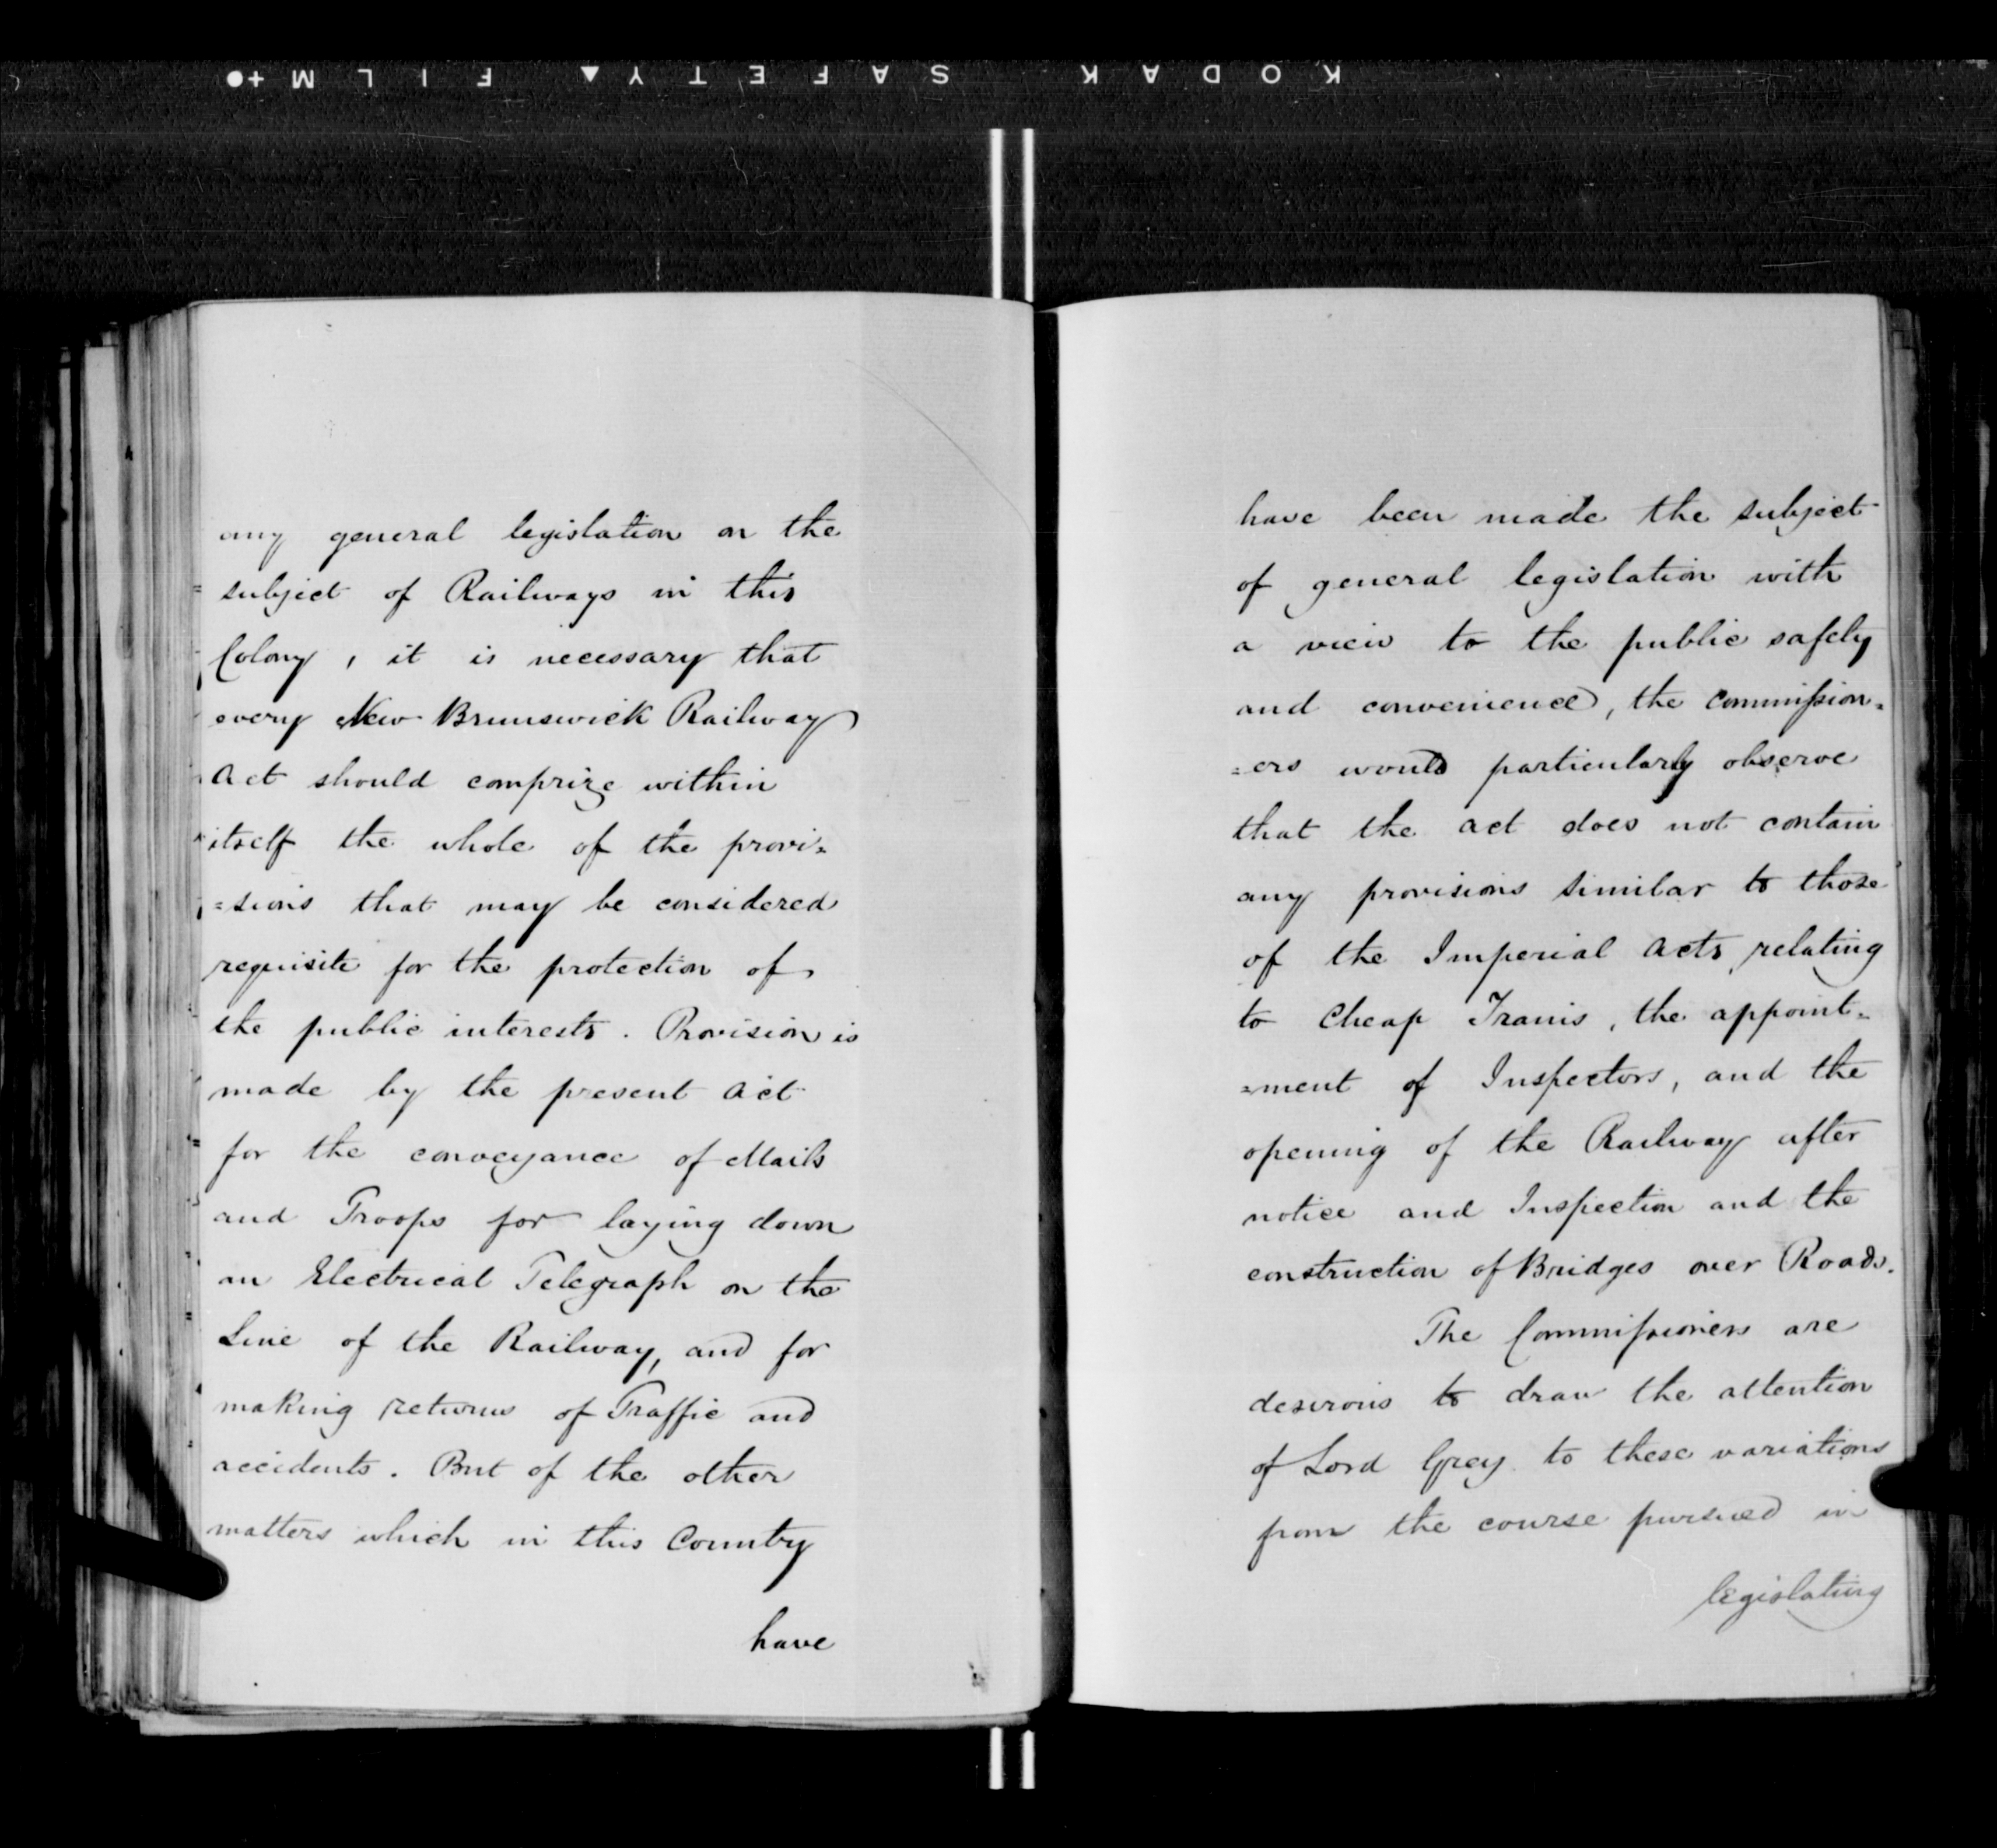 KODAK SAFETY FILM
any general legislation on the
subject of Railways in this
Colony, it is necessary that
every New Brunswick Railway
Act should comprize within
itself the whole of the provi=
=sions that may be considered
requisite for the protection of
the public interests. Provision is
made by the present Act
for the conveyance of Mails
and Troops for laying down
an Electrical Telegraph on the
Line of the Railway, and for
making returns of Traffic and
accidents. But of the other
matters which in this Country
have
have been made the subject
of general legislation with
a view to the public safety
and convenience, the Commission=
=ers would particularly observe
that the Act does not contain
any provisions similar to those
of the Imperial Acts relating
to Cheap Trains, the appoint=
=ment of Inspectors, and the
opening of the Railway after
notice and Inspection and the
construction of Bridges over Roads.
The Commissioners are
desirous to draw the attention
of Lord Grey to these variations
from the course pursued in
legislating